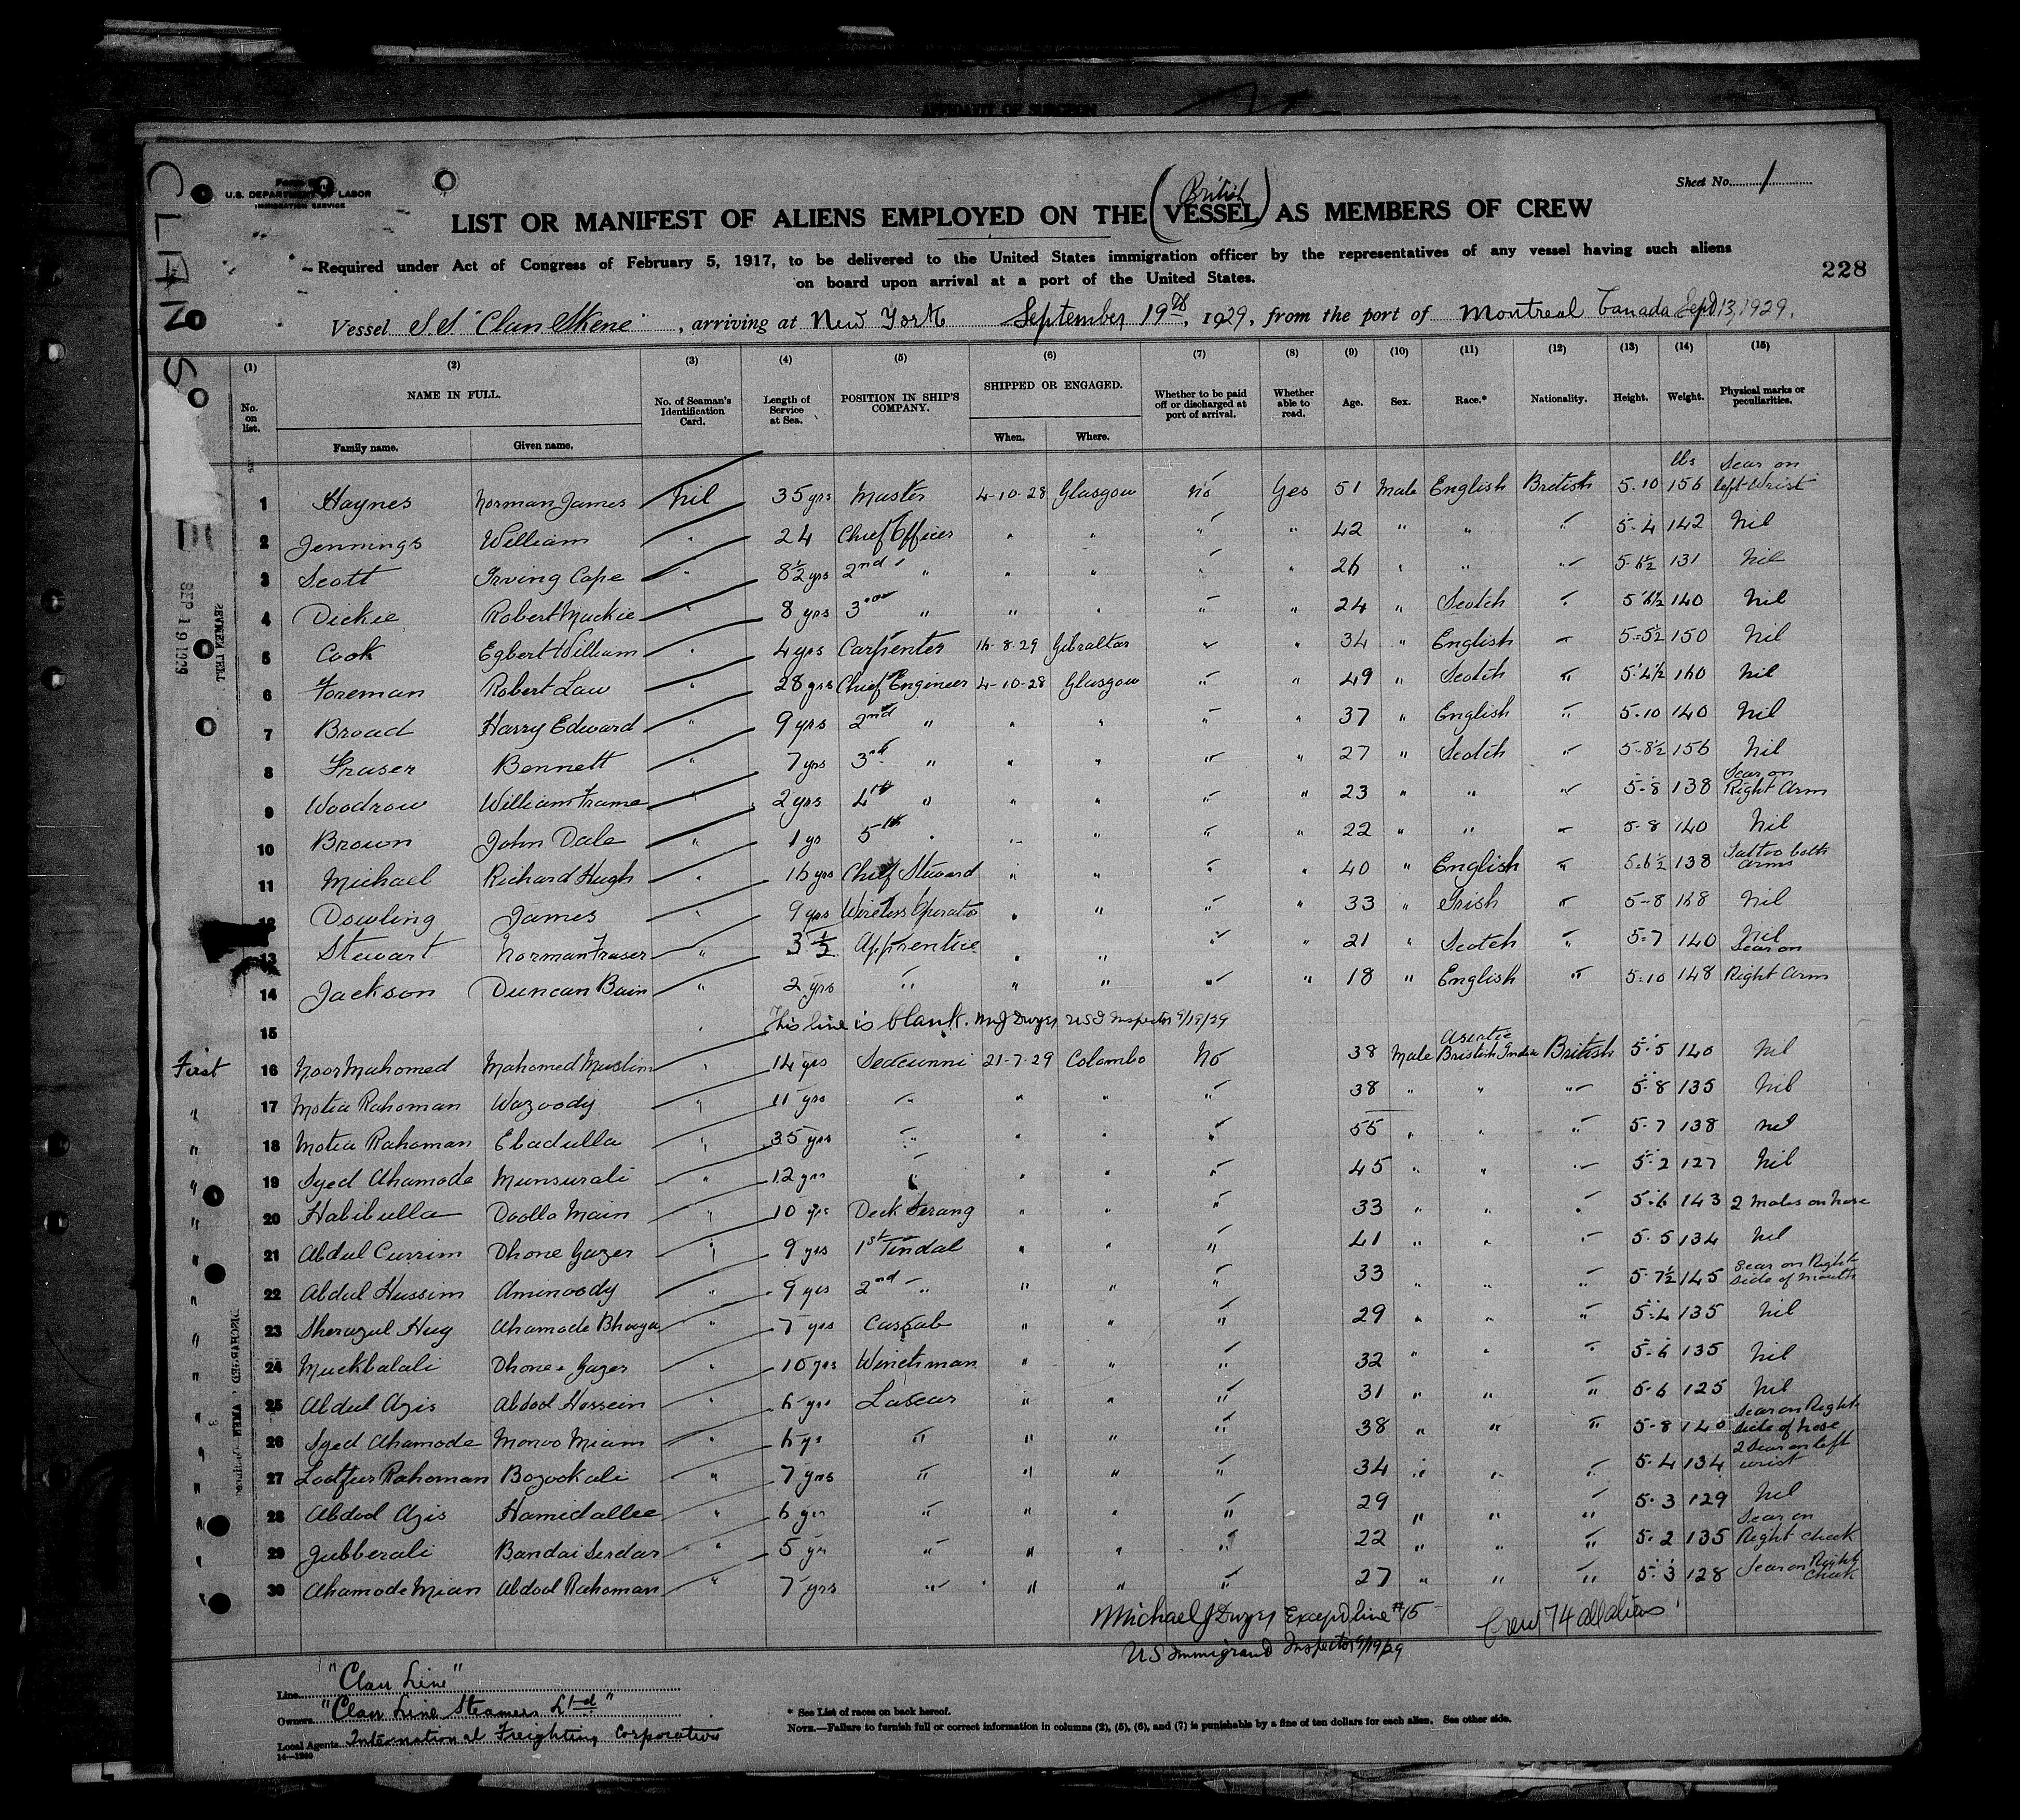 AFFIDAVIT OF SURGEON
CLAN S
U.S. DEPARTMENT OF LABOR
IMMIGRATION SERVICE
Sheet No. 1
British
LIST OR MANIFEST OF ALIENS EMPLOYED ON THE (VESSEL) AS MEMBERS OF CREW
Required under Act of Congress of February 5, 1917, to be delivered to the United States immigration officer by the representatives of any vessel having such aliens
on board upon arrival at a port of the United States.
228
Vessel S.S. "Clan Skene", arriving at New York September 19th, 1929, from the port of Montreal Canada Sept 13, 1929.
(1) (2) (3) (4) (5) (6) (7) (8) (9) (10) (11) (12) (13) (14) (15)
No. on list. NAME IN FULL. Family name. Given name. No. of Seaman's Identification Card. Length of Service at Sea. POSITION IN SHIP'S COMPANY. SHIPPED OR ENGAGED. When. Where. Whether to be paid off or discharged at port of arrival. Whether able to read. Age. Sex. Race.* Nationality. Height. Weight. Physical marks or peculiarities.
1 Haynes Norman James Nil 35 yrs Master 4-10-28 Glasgow No Yes 51 Male English British 5.10 156 lbs Scar on left Wrist
2 Jennings William " 24 Chief Officer " " " " 42 " " " 5-4 142 Nil
3 Scott Irving Cape " 8½ yrs 2nd " " " " " 26 " " " 5-6½ 131 Nil
4 Dickie Robert Mackie " 8 yrs 3rd " " " " " 24 " Scotch " 5'6½ 140 Nil
5 Cook Egbert William " 4 yrs Carpenter 16-8-29 Gibraltar " " 34 " English " 5-5½ 150 Nil
6 Foreman Robert Law " 28 yrs Chief Engineer 4-10-28 Glasgow " " 49 " Scotch " 5'4½ 160 Nil
7 Broad Harry Edward " 9 yrs 2nd " " " " " 37 " English " 5-10 140 Nil
8 Fraser Bennett " 7 yrs 3rd " " " " " 27 " Scotch " 5-8½ 156 Nil
9 Woodrow William Frame " 2 yrs 4th " " " " " 23 " " " 5-8 138 Scar on Right Arm
10 Brown John Dale " 1 yr 5th " " " " " 22 " " " 5-8 140 Nil
11 Michael Richard Hugh " 16 yrs Chief Steward " " " " 40 " English " 5-6½ 138 Tattoo both arms
12 Dowling James " 9 yrs Wireless Operator " " " " 33 " Irish " 5-8 168 Nil
13 Stewart Norman Fraser " 3½ Apprentice " " " " 21 " Scotch " 5-7 140 Nil
14 Jackson Duncan Bain " 2 yrs " " " " " 18 " English " 5-10 148 Scar on Right Arm
15 This line is blank. M J Dwyer US I Inspector 9/19/29
First 16 Noor Mahomed Mahomed Muslim " 14 yrs Seacunni 21-7-29 Colombo No 38 Male Asiatic British India British 5-5 140 Nil
" 17 Motia Rahoman Wazoody " 11 yrs " " " " 38 " " " 5-8 135 Nil
" 18 Motia Rahoman Ebadulla " 35 yrs " " " " 55 " " " 5-7 138 Nil
" 19 Syed Ahamode Munsurali " 12 yrs " " " " 45 " " " 5-2 127 Nil
" 20 Habibulla Doolla Main " 10 yrs Deck Serang " " " 33 " " " 5-6 143 2 Moles on nose
" 21 Abdul Currim Dhone Gazer " 9 yrs 1st Tindal " " " 41 " " " 5-5 134 Nil
" 22 Abdul Hussim Aminoody " 9 yrs 2nd " " " " 33 " " " 5-7½ 145 Scar on Right side of mouth
" 23 Sherazul Hug Ahamode Bhaya " 7 yrs Cassab " " " 29 " " " 5-4 135 Nil
" 24 Muckbalali Dhone Gazer " 10 yrs Winchman " " " 32 " " " 5-6 135 Nil
" 25 Abdul Azis Abdod Hossein " 6 yrs Lascar " " " 31 " " " 5-6 125 Nil
" 26 Syed Ahamode Monoo Miam " 6 yr " " " " 38 " " " 5-8 140 Scar on Right side of nose
" 27 Lootfur Rahoman Bozookali " 7 yrs " " " " 34 " " " 5-4 134 2 Scar on left wrist
" 28 Abdod Azis Hamidallee " 6 yr " " " " 29 " " " 5-3 129 Nil
" 29 Jubberali Bandai Serdar " 5 yr " " " " 22 " " " 5-2 135 Scar on Right cheek
" 30 Ahamode Mian Abdod Rahoman " 7 yrs " " " " 27 " " " 5-3 128 Scar on Right cheek
Michael J Dwyer Except line #15 Crew 74 all aliens
US Immigrant Inspector 9/19/29
SEP 19 1929
Line "Clan Line"
Owners "Clan Line Steamers Ltd"
Local Agents International Freighting Corporation
14—1240
* See List of races on back hereof.
NOTE.—Failure to furnish full or correct information in columns (2), (5), (6), and (7) is punishable by a fine of ten dollars for each alien. See other side.